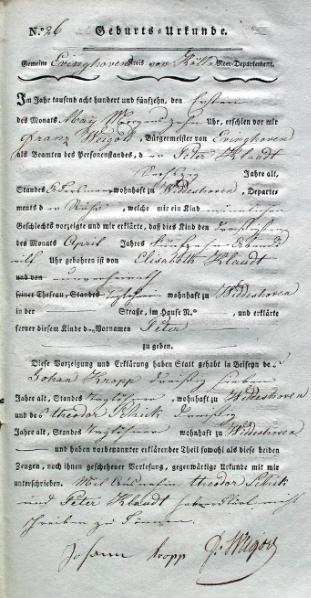 N.º 26 Geburts-Urkunde.
Gemeine Evinghoven Kreis von Kölln Roer-Departement.
Im Jahr tausend acht hundert und fünfzehn, den Ersten
des Monats May Morgens zehn Uhr, erschien vor mir
Franz Weigold, Bürgermeister von Evinghoven
als Beamten des Personenstandes, d er Peter Klaudt
Sechszig Jahre alt,
Standes wohnhaft zu Widdeshoven, Departe-
ments d er Ruhr, welche mir ein Kind männlichen
Geschlechts vorzeigte und mir erklärte, daß dies Kind den dreißigsten
des Monats April Jahres fünfzehn Abends
eilf Uhr gebohren ist von Elisabeth Klaudt
und von unverheirath
seiner Ehefrau, Standes Taglöhnerin wohnhaft zu Widdeshoven
in der Straße, im Hause N.º , und erklärte
ferner diesem Kinde den Vornamen Peter
zu geben.
Diese Vorzeigung und Erklärung haben Statt gehabt in Beiseyn des
Johan Kropp dreißig sieben
Jahre alt, Standes Taglöhner, wohnhaft zu Widdeshoven
und des theodor Schick dreißig
Jahre alt, Standes Taglöhner wohnhaft zu Widdeshoven
und haben vorbenannter erklärender Theil sowohl als diese beiden
Zeugen, nach ihnen geschehener Vorlesung, gegenwärtige Urkunde mit mir
unterschrieben. Mit Ausnahm theodor Schick
und Peter Klaudt nicht
schreiben zu können.
Johann Kropp